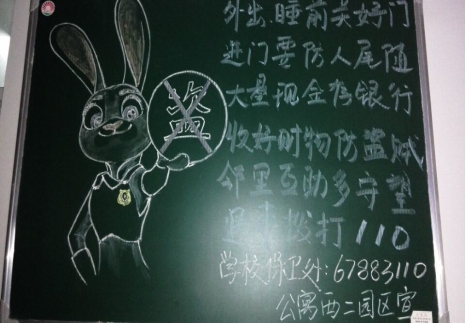 盗
外出、睡前关好门
进门要防人尾随
大量现金存银行
收好财物防盗贼
邻里互助多守望
遇事拨打110
学校保卫处:67883110
公寓西二园区宣